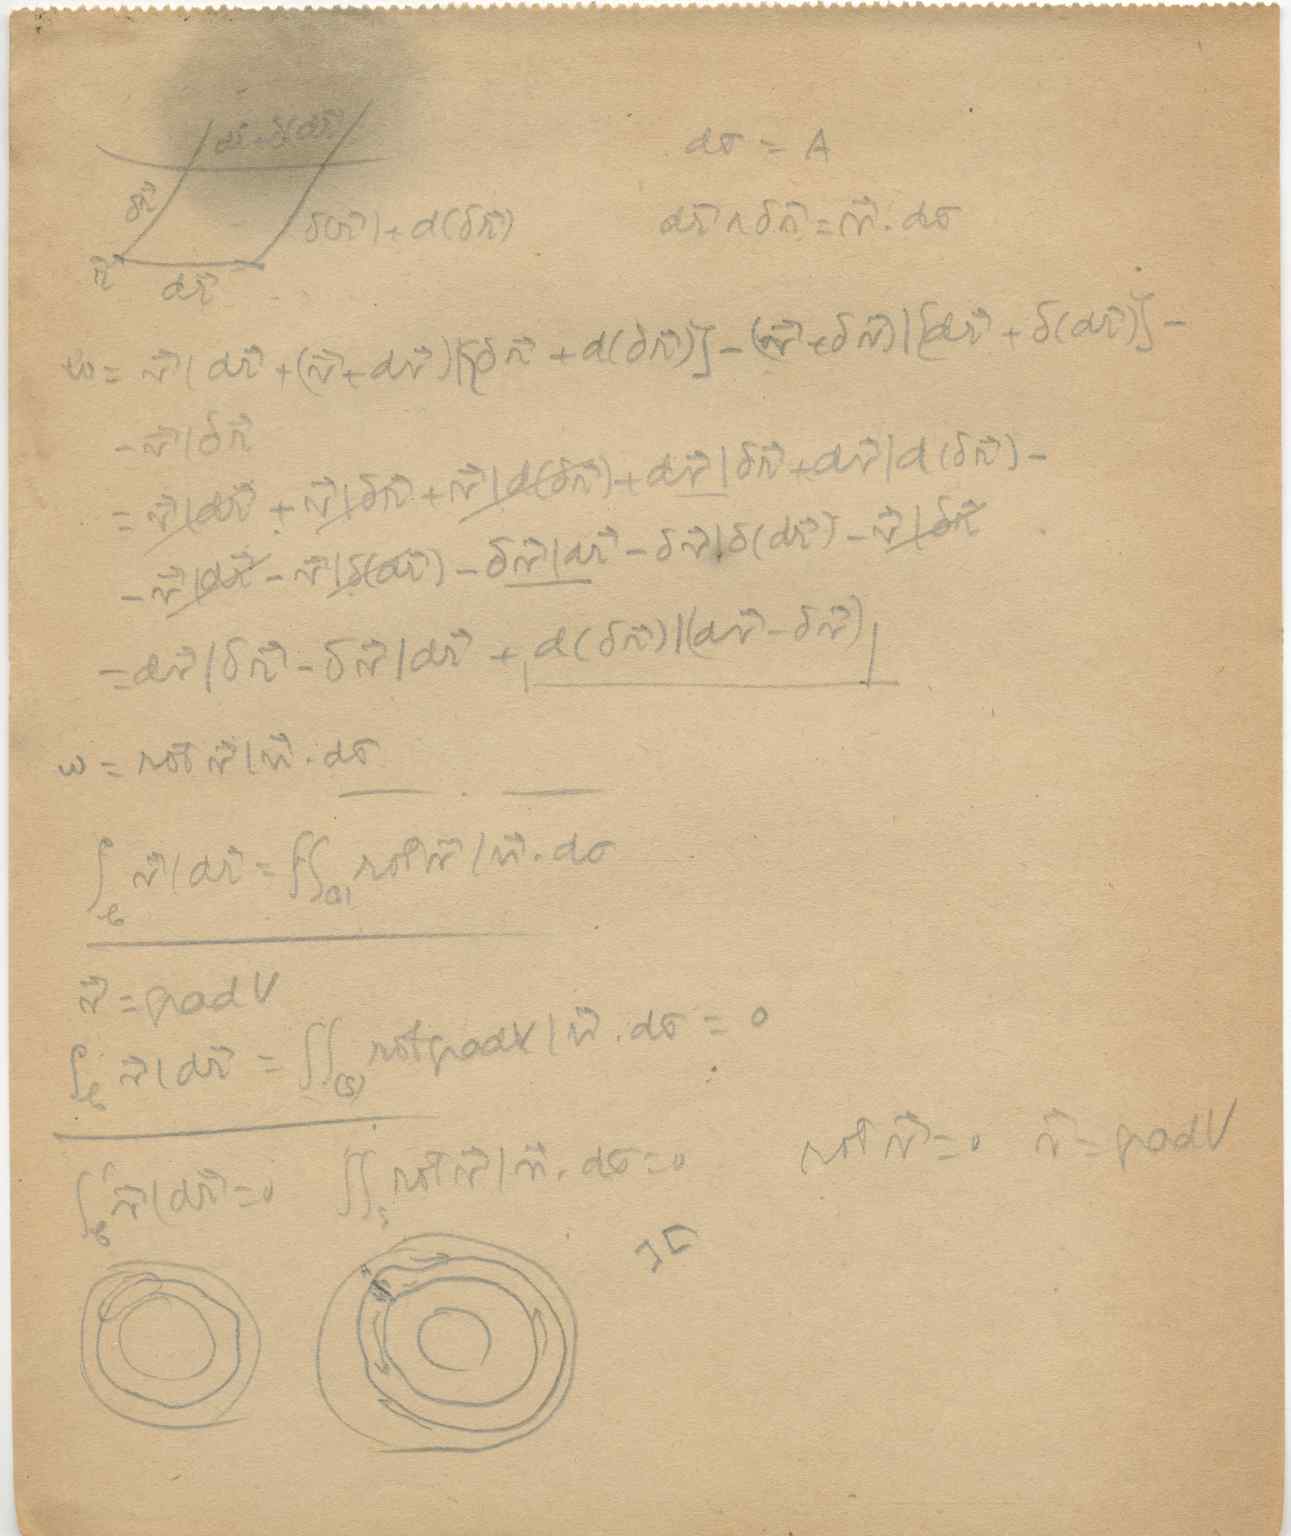 dr⃗ + δ(dr⃗)
dσ = A
δr⃗
δ(r⃗) + d(δr⃗)
dr⃗ ∧ δr⃗ = n⃗ . dσ
r⃗
dr⃗
ω = v⃗ | dr⃗ + (v⃗ + dv⃗) | [δr⃗ + d(δr⃗)] – (v⃗ + δv⃗) | [dr⃗ + δ(dr⃗)] –
– v⃗ | δr⃗
= v⃗ | dr⃗ + v⃗ | δr⃗ + v⃗ | d(δr⃗) + dv⃗ | δr⃗ + dv⃗ | d(δr⃗) –
– v⃗ | dr⃗ – v⃗ | δ(dr⃗) – δv⃗ | dr⃗ – δv⃗ | δ(dr⃗) – v⃗ | δr⃗
= dv⃗ | δr⃗ – δv⃗ | dr⃗ + d(δr⃗) | (dv⃗ – δv⃗)
ω = rot v⃗ | n⃗ . dσ
∫_C v⃗ | dr⃗ = ∫∫_(S) rot v⃗ | n⃗ . dσ
v⃗ = grad V
∫_C v⃗ | dr⃗ = ∫∫_(S) rot grad V | n⃗ . dσ = 0
∫_C v⃗ | dr⃗ = 0 ∫∫_S rot v⃗ | n⃗ . dσ = 0 rot v⃗ = 0 v⃗ = grad V